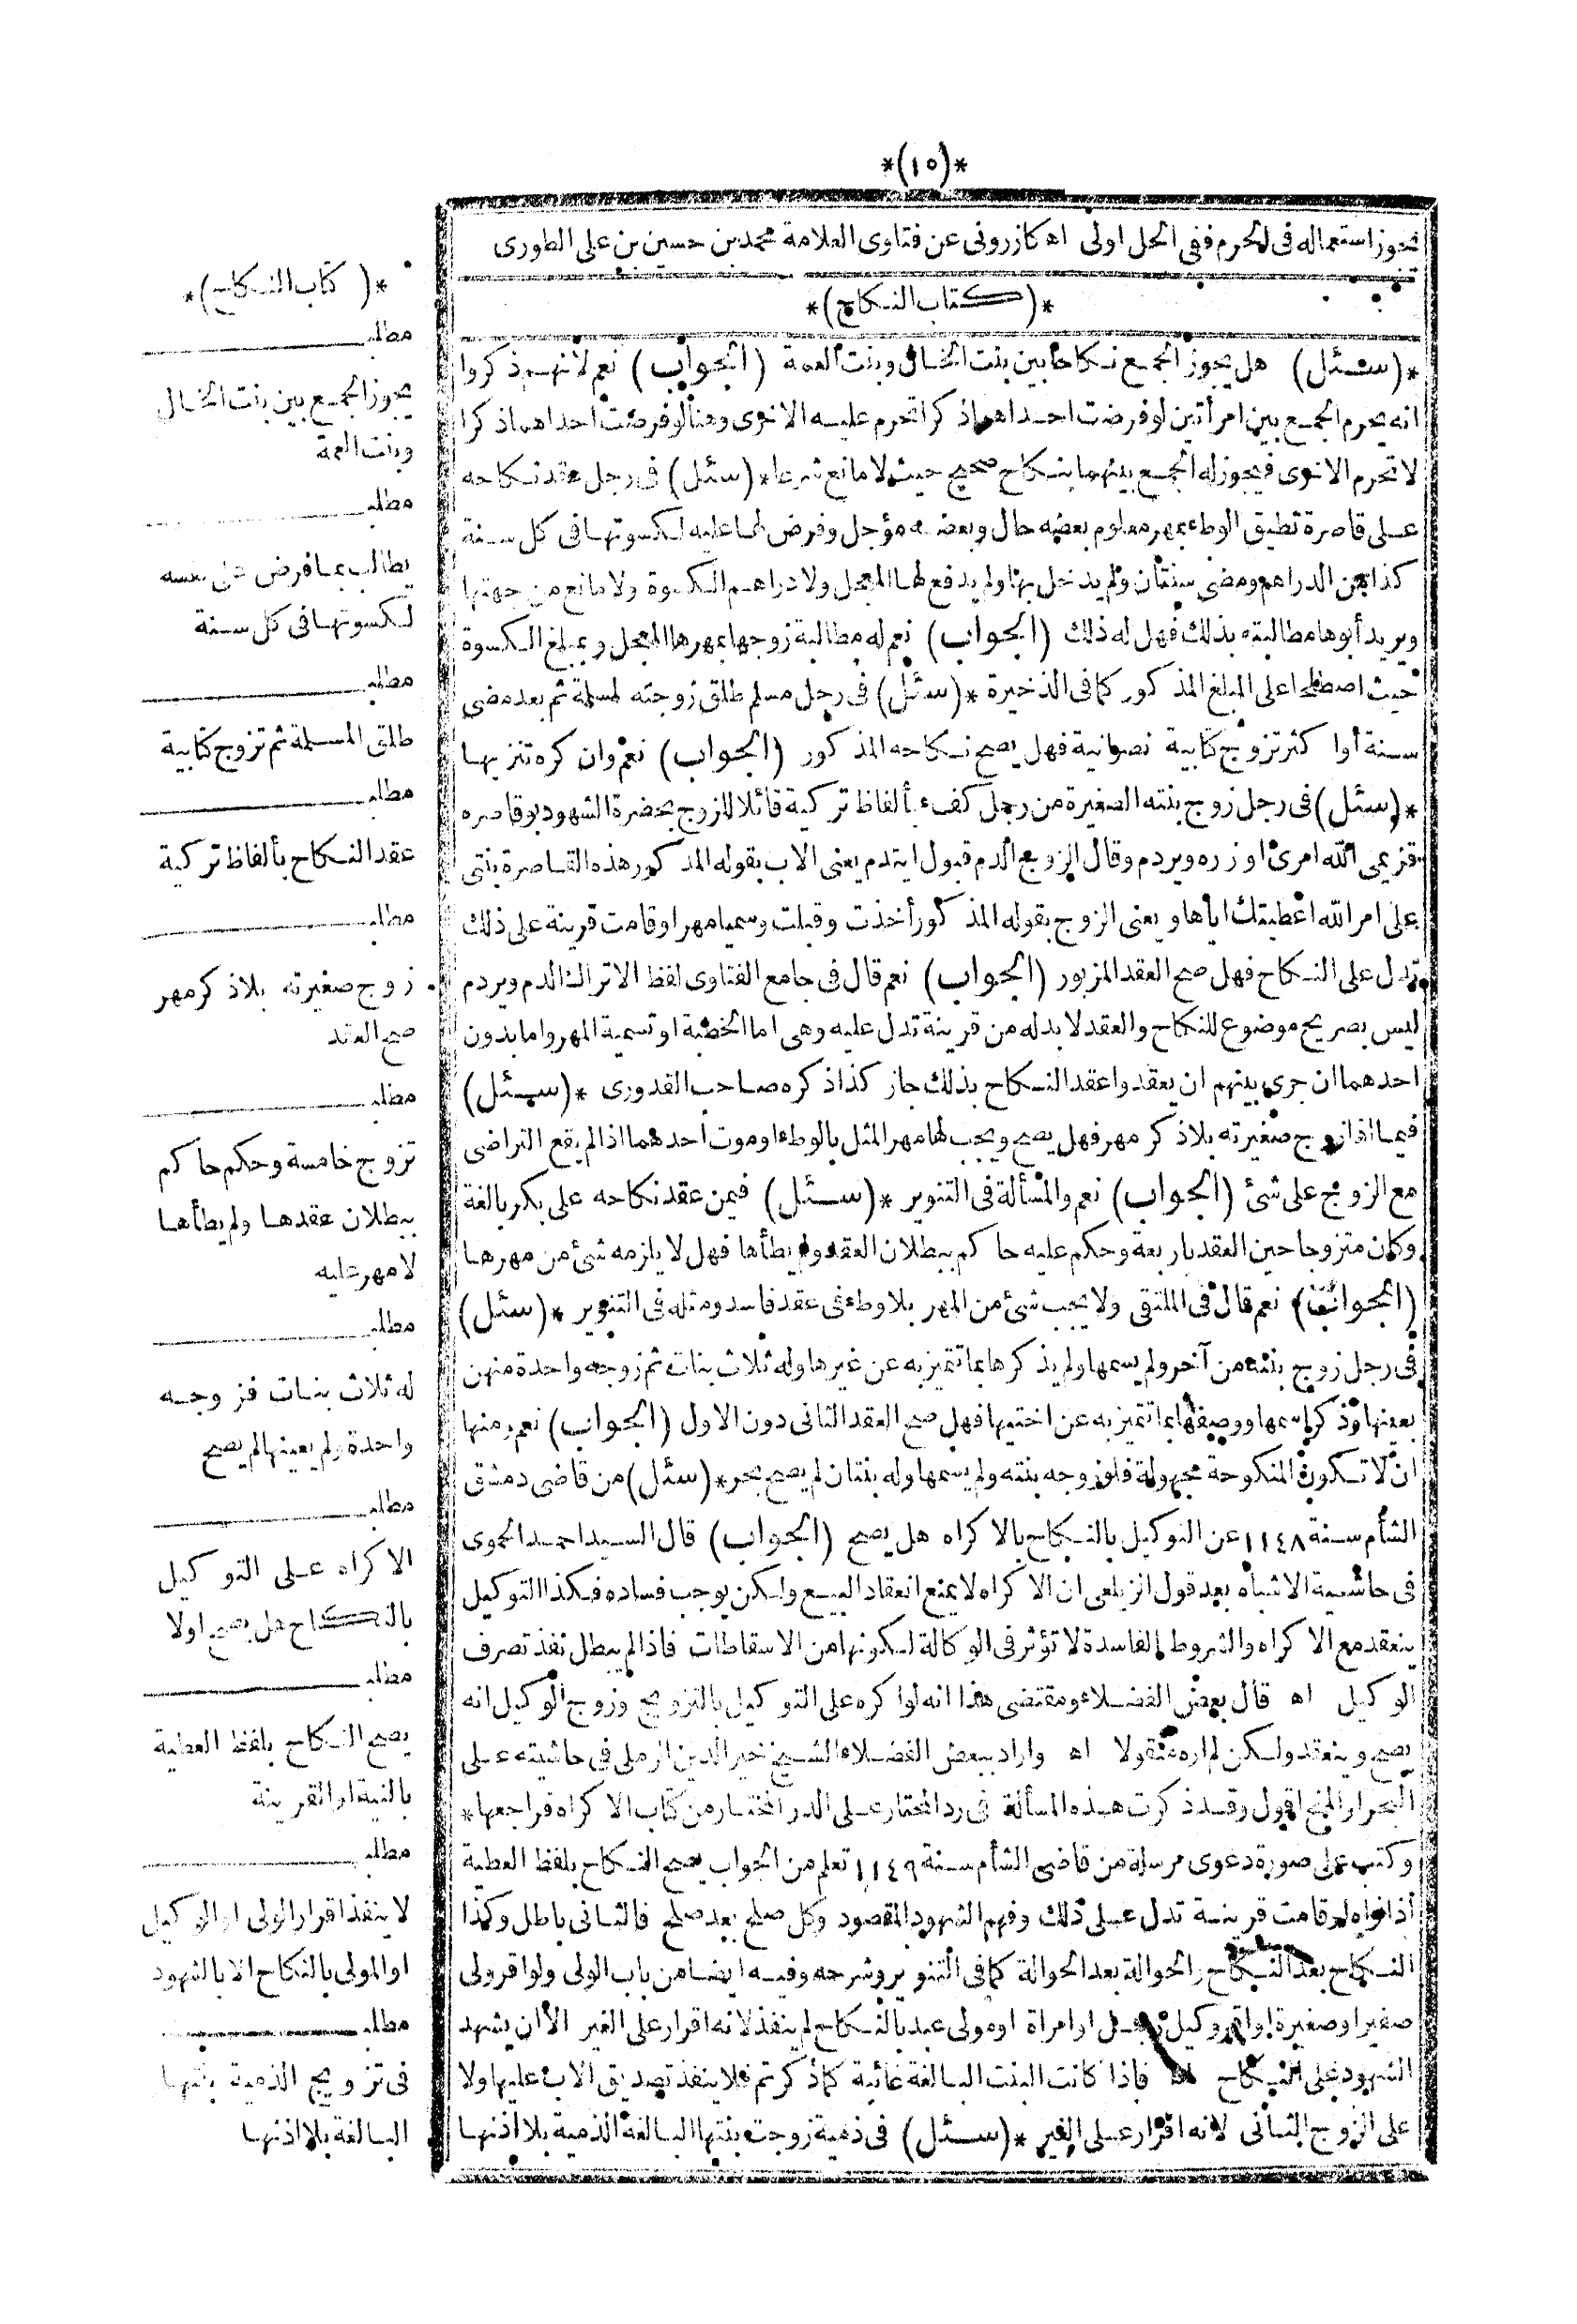 *(١٥)*
تجوز استعماله فى الحرم ففى الحل اولى اه كازرونى عن فتاوى العلامة محمد بن حسين بن على الطورى
*(كتاب النكاح)*
*(سئل) هل يجوز الجمع نكاحا بين بنت الخال وبنت العمة (الجواب) نعم لانهم ذكروا
انه يحرم الجمع بين امرأتين لو فرضت احداهما ذكرا تحرم عليه الاخرى وهنا لو فرضت احداهما ذكرا
لا تحرم الاخرى فيجوز له الجمع بينهما بنكاح صحيح حيث لا مانع شرعا *(سئل) فى رجل عقد نكاحه
على قاصرة تطيق الوطء بمهر معلوم بعضه حال وبعضه مؤجل وفرض لها عليه لكسوتها فى كل سنة
كذا من الدراهم ومضى سنتان ولم يدخل بها ولم يدفع لها المعجل ولا دراهم الكسوة ولا مانع من جهتها
ويريد أبوها مطالبته بذلك فهل له ذلك (الجواب) نعم له مطالبة زوجها بمهرها المعجل وبمبلغ الكسوة
حيث اصطلحا على المبلغ المذكور كما فى الذخيرة *(سئل) فى رجل مسلم طلق زوجته المسلمة ثم بعد مضى
سنة أو اكثر تزوج كتابية نصرانية فهل يصح نكاحه المذكور (الجواب) نعم وان كره تنزيها
*(سئل) فى رجل زوج بنته الصغيرة من رجل كفء بألفاظ تركية قائلا للزوج بحضرة الشهود بوقاصره
قزيمى الله امرى اوزره ويردم وقال الزوج الدم قبول ايتدم يعنى الاب بقوله المذكور هذه القاصرة بنتى
على امر الله اعطيتك اياها ويعنى الزوج بقوله المذكور أخذت وقبلت وسميا مهرا وقامت قرينة على ذلك
تدل على النكاح فهل صح العقد المزبور (الجواب) نعم قال فى جامع الفتاوى لفظ الاتراك الدم ويردم
ليس بصريح موضوع للنكاح والعقد لا بد له من قرينة تدل عليه وهى اما الخطبة او تسمية المهر واما بدون
احدهما ان جرى بينهم ان يعقدوا عقد النكاح بذلك جاز كذا ذكره صاحب القدورى *(سئل)
فيما اذا زوج صغيرته بلا ذكر مهر فهل يصح ويجب لها مهر المثل بالوطء او موت احدهما اذا لم يقع التراضى
مع الزوج على شئ (الجواب) نعم والمسألة فى التنوير *(سئل) فيمن عقد نكاحه على بكر بالغة
وكان متزوجا حين العقد باربعة وحكم عليه حاكم ببطلان العقد ولم يطأها فهل لا يلزمه شئ من مهرها
(الجواب) نعم قال فى الملتقى ولا يجب شئ من المهر بلا وطء فى عقد فاسد ومثله فى التنوير *(سئل)
فى رجل زوج بنته من آخر ولم يسمها ولم يذكرها بما تتميز به عن غيرها وله ثلاث بنات ثم زوجه واحدة منهن
بعينها وذكر اسمها ووصفها بما تتميز به عن اختيها فهل صح العقد الثانى دون الاول (الجواب) نعم ومنها
ان لا تكون المنكوحة مجهولة فلو زوجه بنته ولم يسمها وله بنتان لم يصح بحر *(سئل) من قاضى دمشق
الشأم سنة ١١٤٨ عن التوكيل بالنكاح بالاكراه هل يصح (الجواب) قال السيد احمد الحموى
فى حاشية الاشباه بعد قول الزيلعى ان الاكراه لا يمنع انعقاد البيع ولكن يوجب فساده فكذا التوكيل
ينعقد مع الاكراه والشروط الفاسدة لا تؤثر فى الوكالة لكونها من الاسقاطات فاذا لم يبطل نفذ تصرف
الوكيل اه قال بعض الفضلاء ومقتضى هذا انه لو اكره على التوكيل بالتزويج وزوج الوكيل انه
يصح وينعقد ولكن لم اره منقولا اه واراد ببعض الفضلاء الشيخ خير الدين الرملى فى حاشيته على
البحر او المنح اقول وقد ذكرت هذه المسألة فى رد المحتار على الدر المختار من كتاب الاكراه فراجعها*
وكتب على صورة دعوى مرسلة من قاضى الشأم سنة ١١٤٩ تعلم من الجواب يصح النكاح بلفظ العطية
اذا نواه او قامت قرينة تدل على ذلك وفهم الشهود المقصود وكل صلح بعد صلح فالثانى باطل وكذا
النكاح بعد النكاح والحوالة بعد الحوالة كما فى التنوير وشرحه وفيه ايضا من باب الولى ولو اقر ولى
صغير او صغيرة او اقر وكيل رجل او امراة او مولى عبد بالنكاح لم ينفذ لانه اقرار على الغير الا ان يشهد
الشهود على النكاح اه فاذا كانت البنت البالغة غائبة كما ذكرتم فلا ينفذ تصديق الاب عليها ولا
على الزوج الثانى لانه اقرار على الغير *(سئل) فى ذمية زوجت بنتها البالغة الذمية بلا اذنها
*(كتاب النكاح)*
مطلب
يجوز الجمع بين بنت الخال
وبنت العمة
مطلب
يطالب بما فرض على نفسه
لكسوتها فى كل سنة
مطلب
طلق المسلمة ثم تزوج كتابية
مطلب
عقد النكاح بألفاظ تركية
مطلب
زوج صغيرته بلا ذكر مهر
صح العقد
مطلب
تزوج خامسة وحكم حاكم
ببطلان عقدها ولم يطأها
لا مهر عليه
مطلب
له ثلاث بنات فزوجه
واحدة ولم يعينها لم يصح
مطلب
الاكراه على التوكيل
بالنكاح هل يصح اولا
مطلب
يصح النكاح بلفظ العطية
بالنية او القرينة
مطلب
لا ينفذ اقرار الولى او الوكيل
او المولى بالنكاح الا بالشهود
مطلب
فى تزويج الذمية بنتها
البالغة بلا اذنها